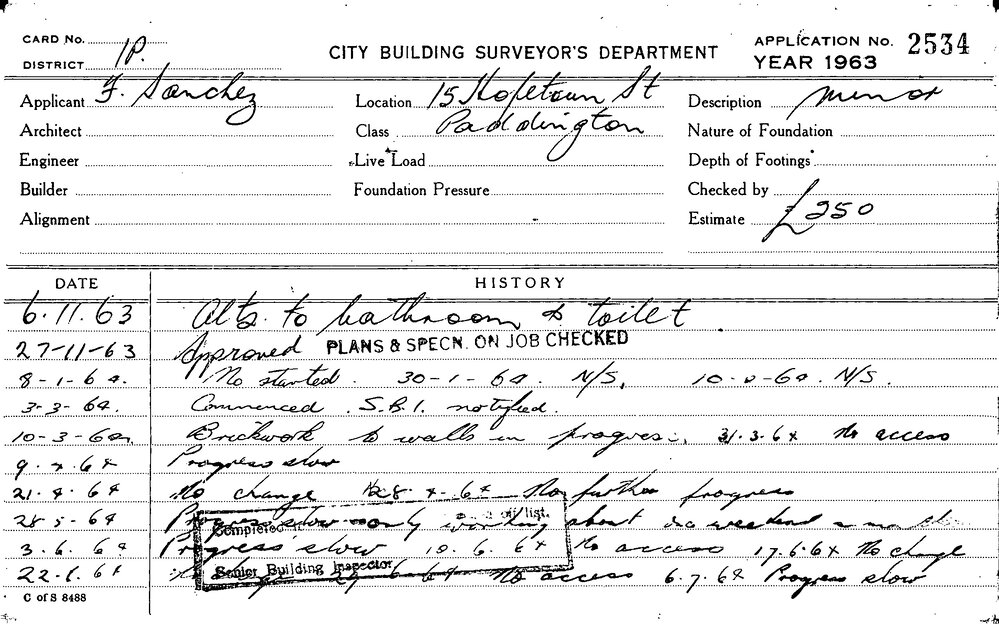 CARD No. 
DISTRICT 1P.
CITY BUILDING SURVEYOR'S DEPARTMENT
APPLICATION No. 2534
YEAR 1963
Applicant F. Sanchez
Location 15 Hopetoun St
Description minor
Architect
Class Paddington
Nature of Foundation
Engineer
Live Load
Depth of Footings
Builder
Foundation Pressure
Checked by
Alignment
Estimate £250
DATE HISTORY
6.11.63 Alts. to bathroom & toilet
27-11-63 Approved PLANS & SPECN. ON JOB CHECKED
8-1-64. No started. 30-1-64. N/S. 64. N/S.
3-3-64. Commenced S.B.I. notified.
10-3-64 Brickwork to walls in progress. 31.3.64 No access
9.4.64 Progress slow
21.4.64 No change 28.4.64 No further progress
28-5-64 slow only working about weekend
3.6.64 Progress slow 10.6.64 No access 17.6.64 No change
22.6.64 No access 6.7.64 Progress slow
Completed off list.
Senior Building Inspector
C of S 8488